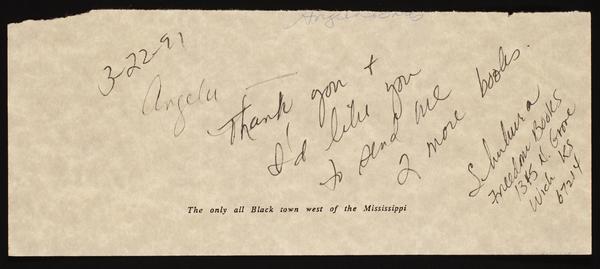 Angela Bates
3-22-91
Angela —
Thank you +
I'd like you
to send me
2 more books.
Freedom Books
1345 N. Grove
Wich KS
67214
The only all Black town west of the Mississippi